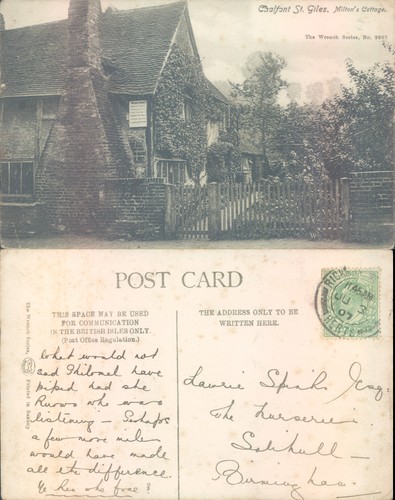 Chalfont St. Giles. Milton's Cottage.
The Wrench Series, No. 9907
POST CARD
THIS SPACE MAY BE USED
FOR COMMUNICATION
IN THE BRITISH ISLES ONLY.
(Post Office Regulation.)
THE ADDRESS ONLY TO BE
WRITTEN HERE.
The Wrench Series,
Printed in Saxony
HERTS
What would not
have
piped had she
who was
listening — Perhaps
a few more miles
would have made
all the difference.
Ye who
Laurie Esq.
The Nurseries
Solihull —
Birmingham.